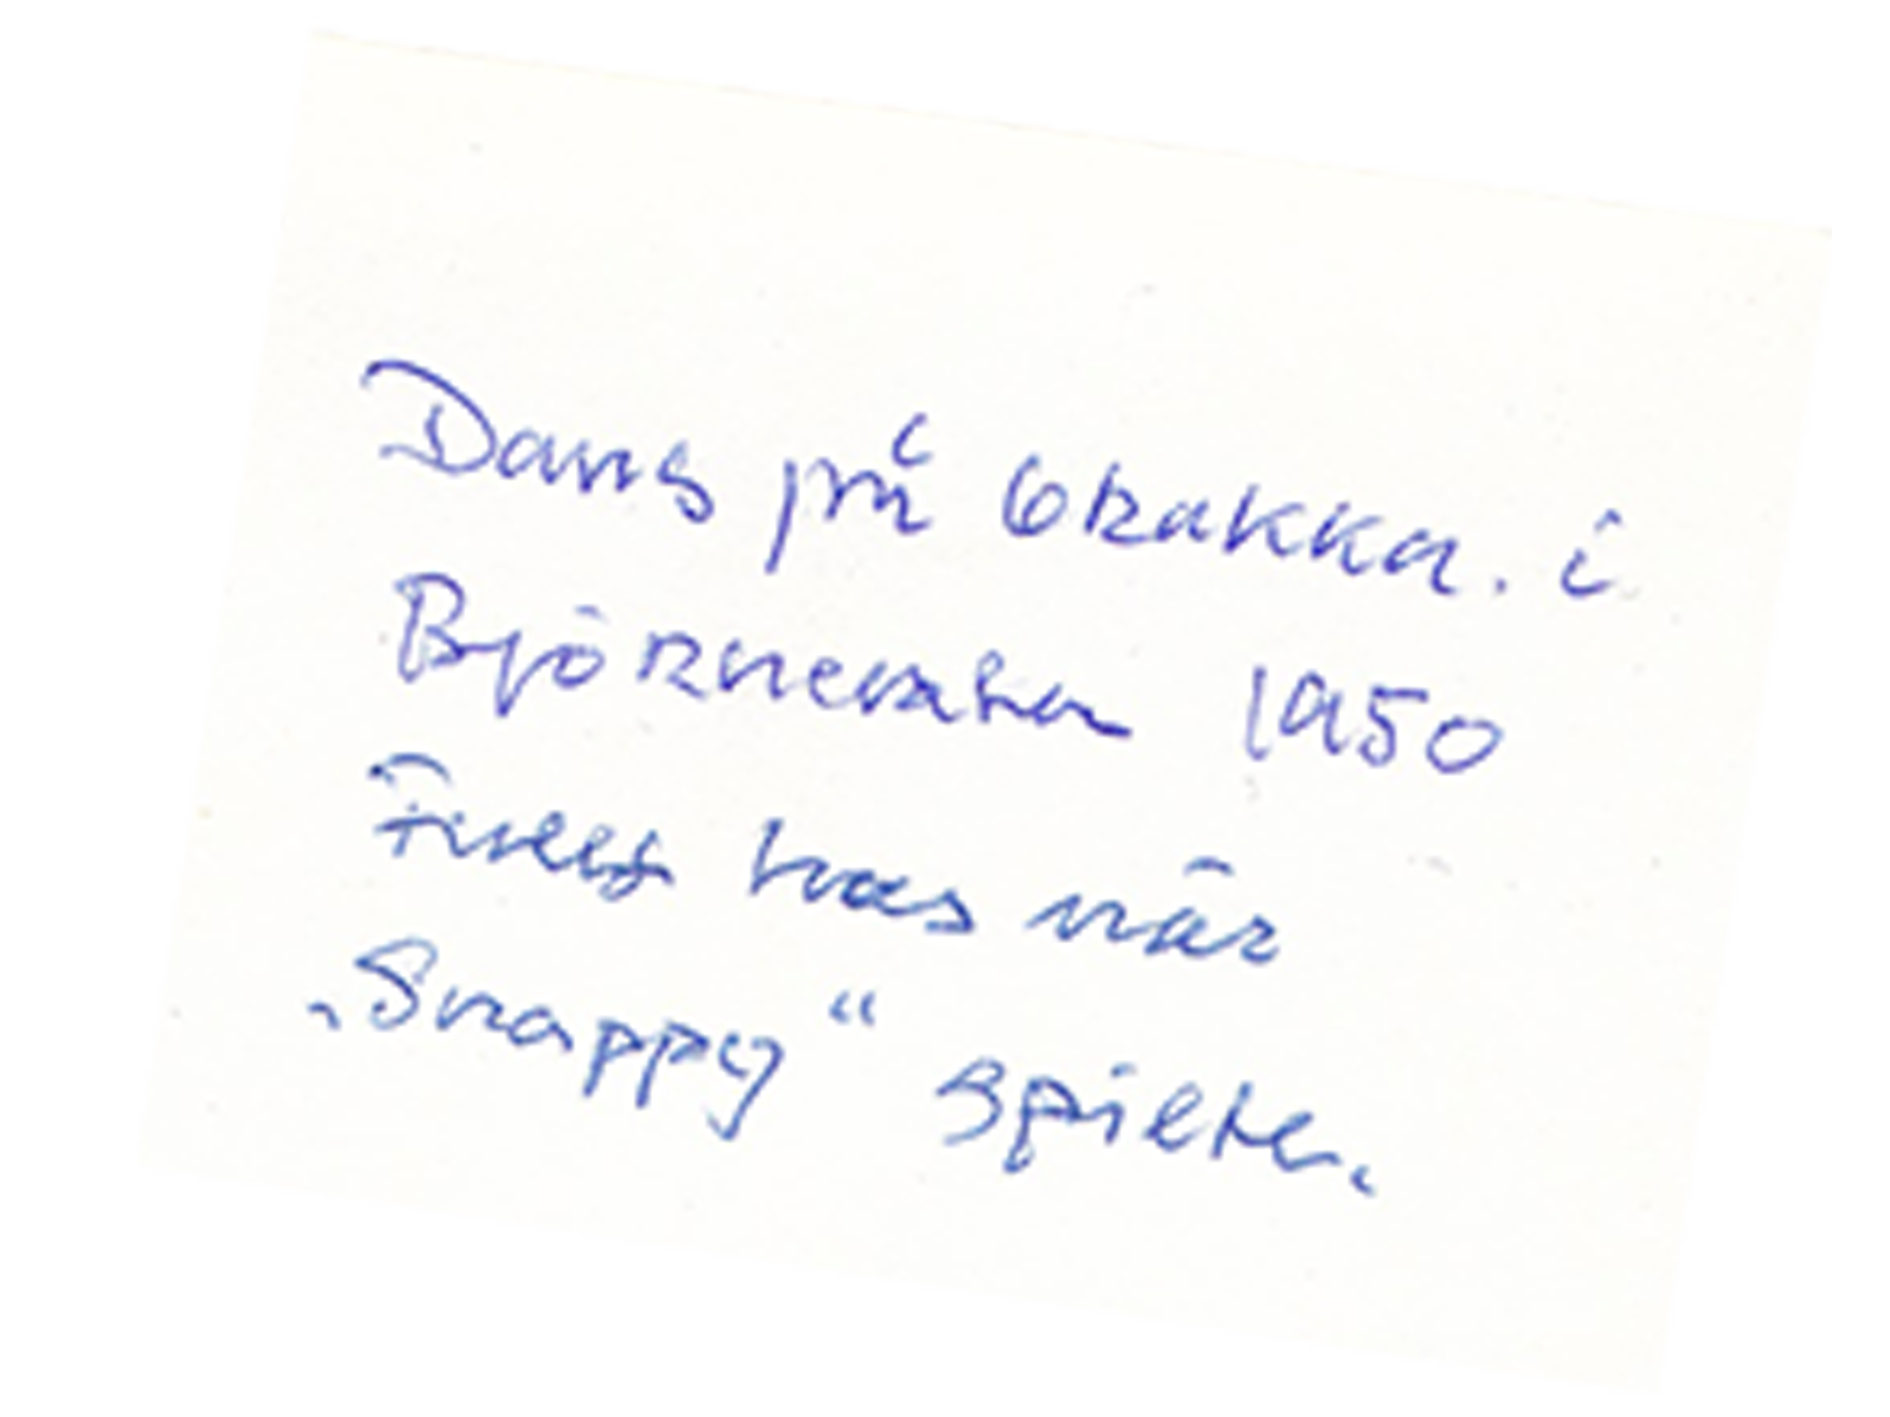 Dans på brakka. i
Björnevatn 1950
Fullt hus når
„Snappy“ spilte.